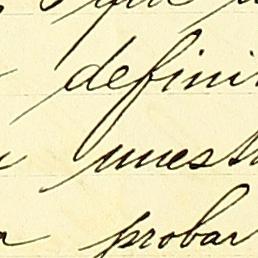 que
defini
nuest
probar